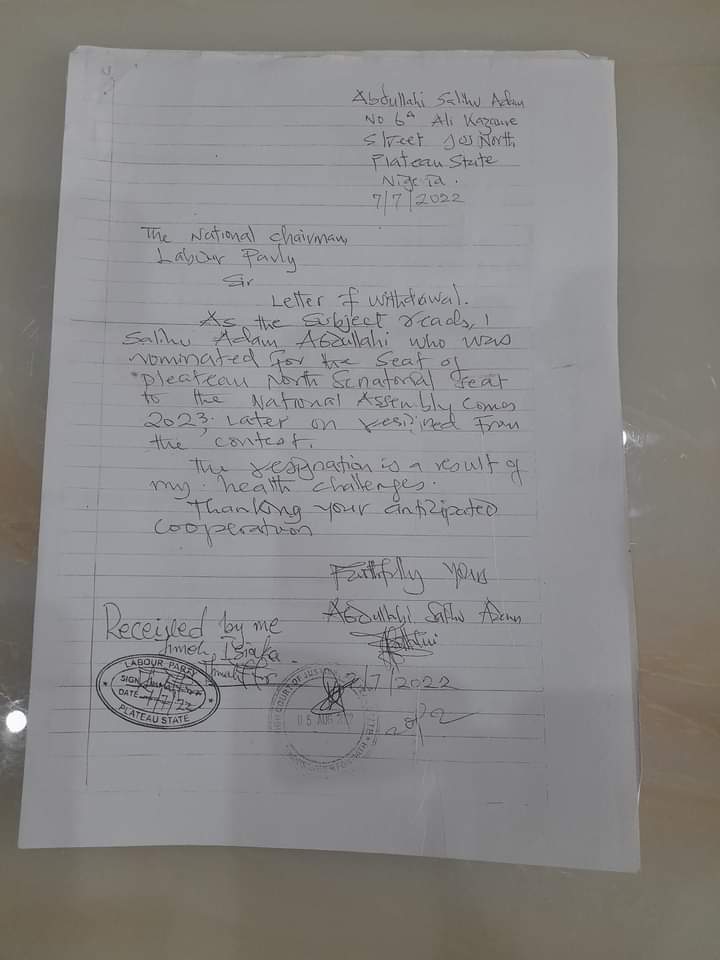 Abdullahi Salihu Adam
No 6A Ali Kazaure
Street Jos North
Plateau State
Nigeria.
7/7/2022
The National Chairman,
Labour Party
Sir
Letter of withdrawal.
As the subject reads, I
Salihu Adam Abdullahi who was
nominated for the seat of
pleateau North Senatorial Seat
to the National Assembly comes
2023, Later on resigned from
the contest.
The resignation is a result of
my health challenges.
Thanking your anticipated
cooperation
Faithfully yours
Abdullahi Salihu Adam
Received by me
Jimoh
LABOUR PARTY
SIGN
DATE 7/7/22
PLATEAU STATE
COURT OF JUSTICE
05 AUG
7/2022